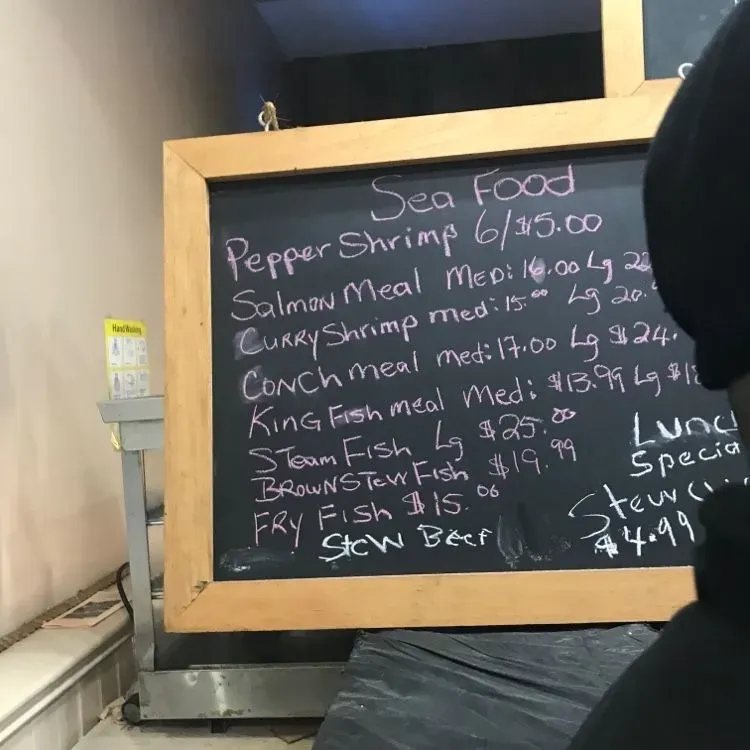 Sea Food
Pepper Shrimp 6/$5.00
Salmon Meal MED: 16.00 Lg 22
CURRY Shrimp med: 15.00 Lg 20.
CONCH meal med: 17.00 Lg $24.
KING Fish meal Med: $13.99 Lg $18
STeam Fish Lg $25.00
BROWN STew Fish $19.99
FRY Fish $15.00
Stew Beef
Lunc
Specia
Stew
$4.99
Hand Washing